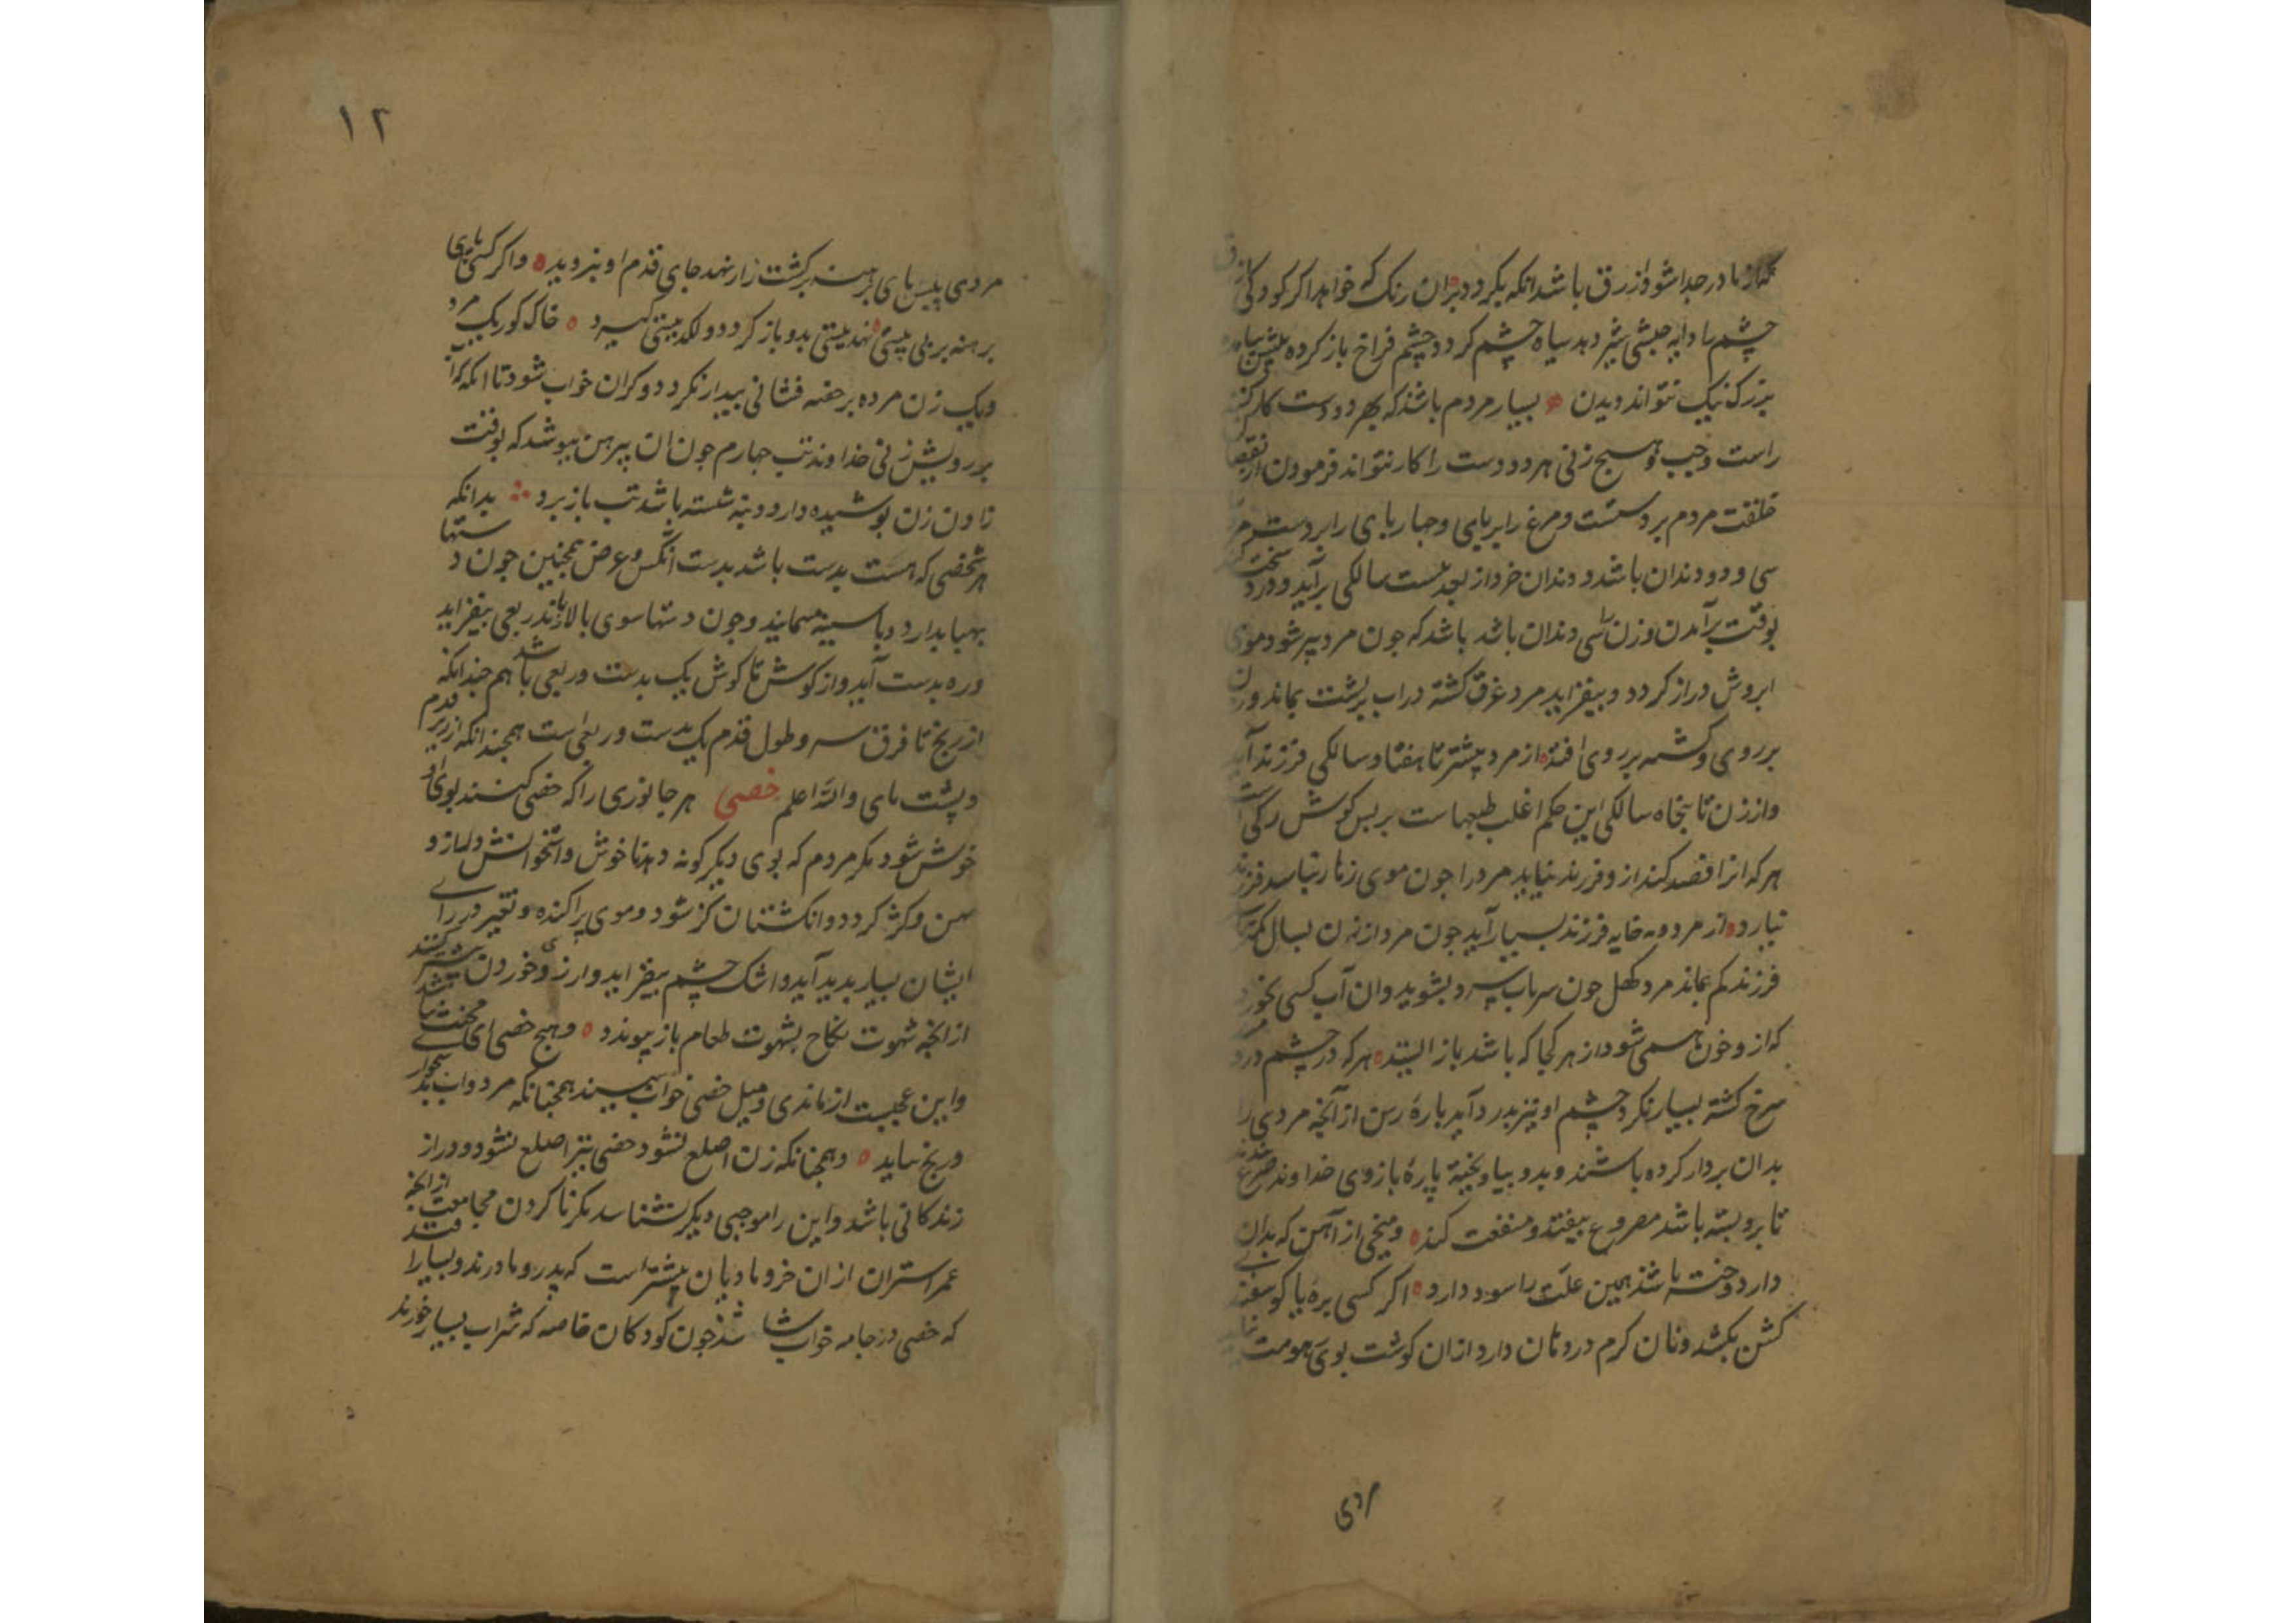 که از مادر جدا شود ازرق باشد انکه بکردد بران رنک که خواهد اکر کودکی ازرق
چشم را دایه حبشی شیر دهد سیاه چشم کردد و چشم فراخ باز کرده پیش
بزرک نیک نتواند دیدن بسیار مردم باشد که بهر دو دست کار کنند
راست و چپ و هیچ زنی هر دو دست را کار نتواند فرمودن از
خلقت مردم بر دستست و مرغ را بر پای و چهار پای را بر دست
سی و دو دندان باشد و دندان خرد از بعد بیست سالکی برآید و درد سخت
بوقت برآمدن و زن را سی دندان باشد باشد که چون مرد پیر شود موی
ابروش دراز کردد و بیفزاید مرد غرق کشته در اب بر پشت بماند و زن
بر روی و کشته بر روی افتد از مرد پیشتر تا هفتاد سالکی فرزند آید
و از زن تا پنجاه سالکی این حکم اغلب طبعهاست بر پس کوش رکی است
هر که انرا فصد کند ازو فرزند نیاید مرد را چون موی زنار نباسد فرزند
نیارد از مرد دمه خایه فرزند بسیار آید چون مرد از زن بسال کمتر
فرزند کم بماند مرد کهل چون سر باب سرد بشوید و ان آب کسی بخورد
که ازو خون همی شود از هر کجا که باشد باز ایستد هر که در چشم درد
سرخ کشته بسیار نکرد چشم او نیز بدرد آید پارهٔ رسن از آنچه مردی را
بدان بردار کرده باشند و بدو بیاویخته پارهٔ بازوی خداوند صرع
تا برو بسته باشد مصروع بیفتد و منفعت کند و میخی از آهن که بدان
دار دوخته باشد همین علت را سود دارد اکر کسی بره یا کوسفند
کشن بکشد و نان کرم در و نان دارد ازان کوشت بوی هومت
مردی
۱۲
مردی پلیس پای برهنه بر کشت زار نهد جای قدم او نبز روید و اکر کسی پای
برهنه بر پی پیسئ نهد پیستی بدو باز کردد و لکه پیستی کیرد خاک کور یک مرد
و یک زن مرده بر خفته فشانی بیدار نکردد و کران خواب شود تا انکه که
بر رویش زنی خداوند تب چهارم چون ان پیرهن بپوشد که بوقت
زادن زن پوشیده دارد و نه شسته باشد تب باز برد بدانکه
هر شخصی که هست بدست باشد بدست انکس و عرض همچنین چون دستها
بپهنا بدارد و با سینه بماند و چون دستها سوی بالا یازند ربعی بیفزاید
و ره بدست آید و از کوش تا کوش یک بدست و ربعی باشد هم چندانکه
از زنخ تا فرق سر و طول قدم یک بدست و ربعی است همچندانکه از زیر قدم
و پشت پای والله اعلم خصی هر جانوری را که خصی کنند بوی او
خوش شود مکر مردم که بوی دیکر کونه دهد ناخوش و استخوانش دراز و
پهن و کژ کردد و انکشتان کژ شود و موی پراکنده و تغیر در رای
ایشان بسیار بدید آید و اشک چشم بیفزاید و ارزوی خوردن بیشتر کنند
از انچه شهوت نکاح بشهوت طعام باز پیوندد و هیچ خصی ای مخنث نباشد
و این عجبست از ماندی و میل خصی خواب بیسند همچنانکه مرد و اب
و ریخ نماید و همچنانکه زن اصلع نشود خصی نیز اصلع نشود و دراز
زندکانی باشد و این را موجبی دیکر نشناسد مکر ناکردن مجامعت از انچه
عمر استران از ان خر و مادیان بیشتر است که پدر و مادرند و بسیار افتد
که خصی در جامه خواب شاشد چون کودکان خاصه که شراب بسیار خورند